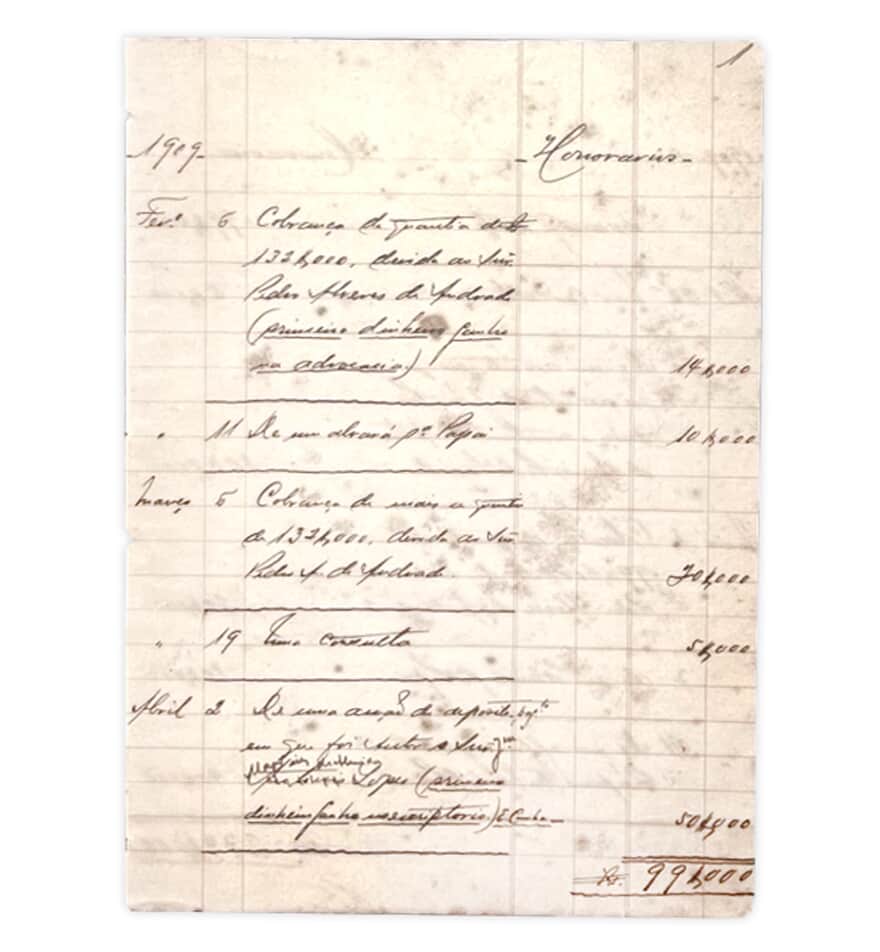 1
1909 Honorarios
Fever.º 6 Cobrança da quantia de
132$000, devida ao Snr.
Pedro Alvares de Andrade
(primeiro dinheiro ganho
na advocacia.) 14$000
" 11 De um alvará pª Papai 10$000
Março 5 Cobrança de mais a quantia
de 132$000, devida ao Snr.
Pedro A. de Andrade. 20$000
" 19 Uma consulta 5$000
Abril 2 De uma acção de deposito,
em que foi autor o Snr.
Lopes (primeiro
dinheiro ganho no escriptorio.) E. Cunha 50$000
Rs. 99$000